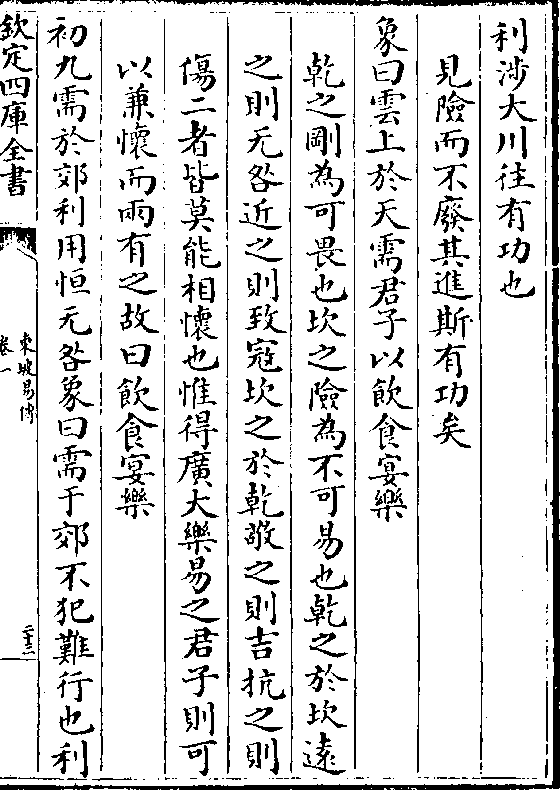 利涉大川往有功也
見險而不廢其進斯有功矣
象曰雲上於天需君子以飲食宴樂
乾之剛為可畏也坎之險為不可易也乾之於坎遠
之則无咎近之則致寇坎之於乾敬之則吉抗之則
傷二者皆莫能相懷也惟得廣大樂易之君子則可
以兼懷而兩有之故曰飲食宴樂
初九需於郊利用恒无咎象曰需于郊不犯難行也利
欽定四庫全書
東坡易傳
卷一
二十三